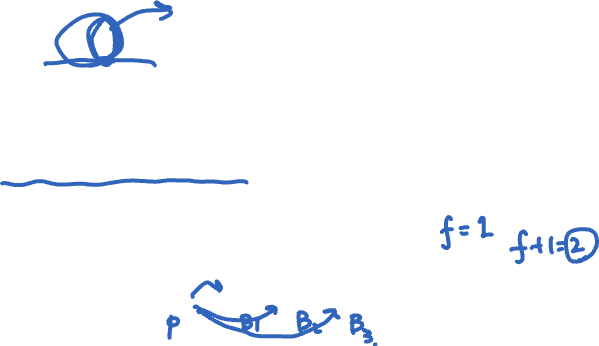 f=1
f+1=2
P B1 B2 B3.